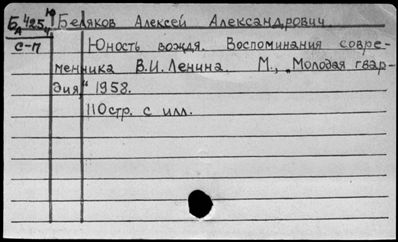 Ба 425 ю Беляков Алексей Александрович.
С-П
Юность вождя. Воспоминания совре-
менника В.И. Ленина. М., „Молодая гвар-
дия," 1958.
110стр. с илл.